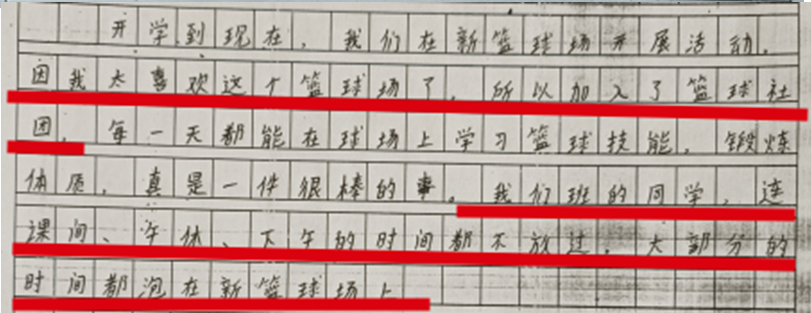 开学到现在，我们在新篮球场开展活动，
因我太喜欢这个篮球场了，所以加入了篮球社
团，每一天都能在球场上学习篮球技能，锻炼
体质，真是一件很棒的事。我们班的同学，连
课间、午休、下午的时间都不放过，大部分的
时间都泡在新篮球场上